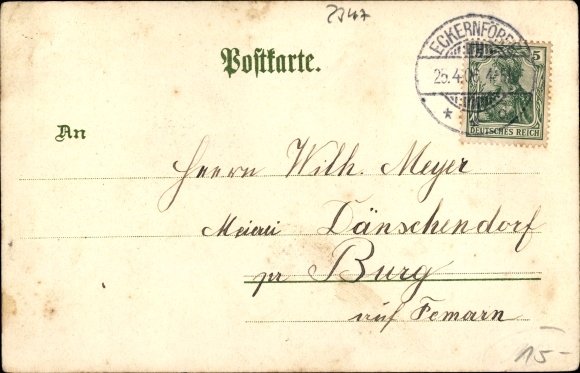 2347
Postkarte.
ECKERNFÖRDE
25.4.06
5
DEUTSCHES REICH
An
Herrn Wilh. Meyer
Meierei Dänschendorf
pr Burg
auf Femarn
15-